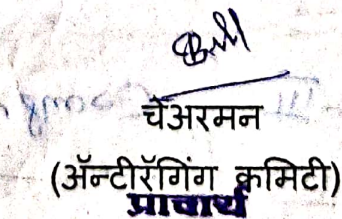 चेअरमन
(ॲन्टीरॅगिंग कमिटी)
प्राचार्य